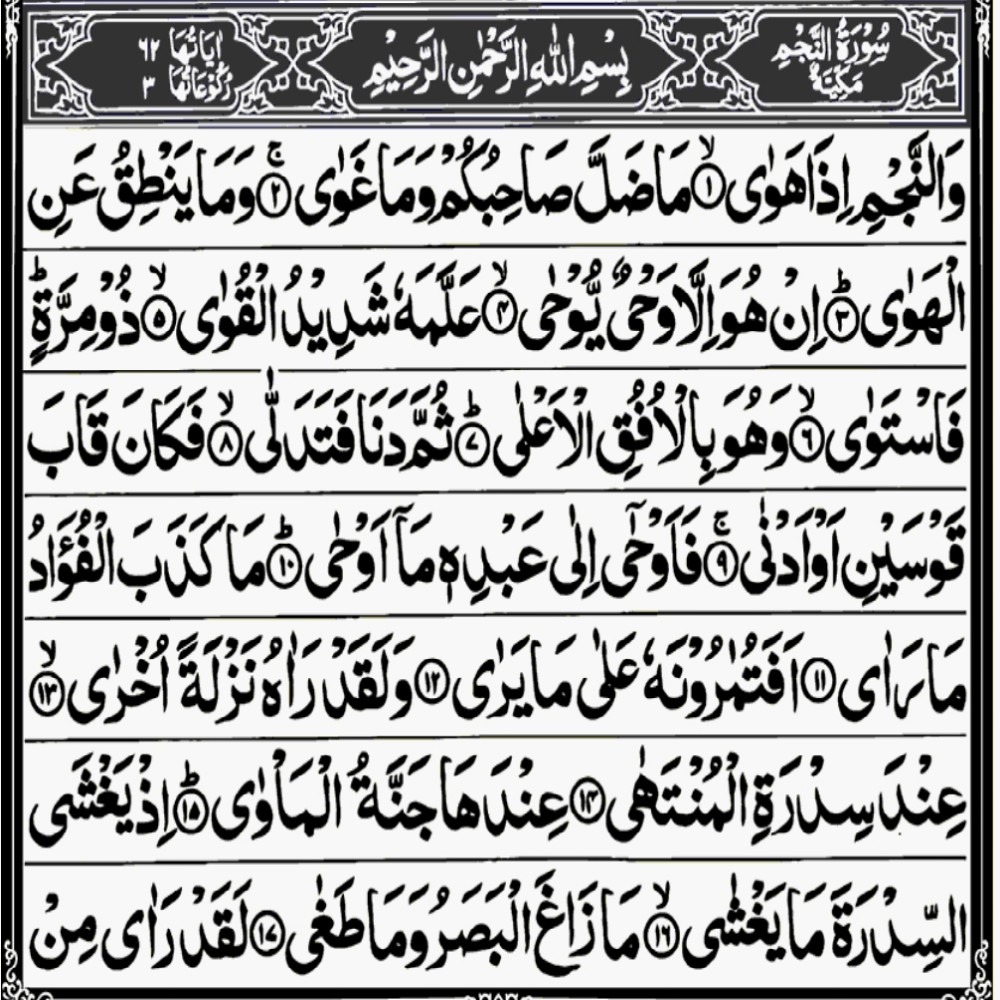 سُوْرَةُ النَّجْمِ مَكِّيَّةٌ
بِسْمِ اللّٰهِ الرَّحْمٰنِ الرَّحِيْمِ
اٰيَاتُهَا ٦٢
رُكُوْعَاتُهَا ٣
وَالنَّجْمِ اِذَا هَوٰى ۙ﴿١﴾ مَا ضَلَّ صَاحِبُكُمْ وَمَا غَوٰى ۚ﴿٢﴾ وَمَا يَنْطِقُ عَنِ
الْهَوٰى ؕ﴿٣﴾ اِنْ هُوَ اِلَّا وَحْىٌ يُّوْحٰى ۙ﴿٤﴾ عَلَّمَهٗ شَدِيْدُ الْقُوٰى ۙ﴿٥﴾ ذُوْ مِرَّةٍ ؕ
فَاسْتَوٰى ۙ﴿٦﴾ وَهُوَ بِالْاُفُقِ الْاَعْلٰى ؕ﴿٧﴾ ثُمَّ دَنَا فَتَدَلّٰى ۙ﴿٨﴾ فَكَانَ قَابَ
قَوْسَيْنِ اَوْ اَدْنٰى ۚ﴿٩﴾ فَاَوْحٰٓى اِلٰى عَبْدِهٖ مَآ اَوْحٰى ؕ﴿١٠﴾ مَا كَذَبَ الْفُؤَادُ
مَا رَاٰى ﴿١١﴾ اَفَتُمٰرُوْنَهٗ عَلٰى مَا يَرٰى ﴿١٢﴾ وَلَقَدْ رَاٰهُ نَزْلَةً اُخْرٰى ۙ﴿١٣﴾
عِنْدَ سِدْرَةِ الْمُنْتَهٰى ﴿١٤﴾ عِنْدَهَا جَنَّةُ الْمَاْوٰى ؕ﴿١٥﴾ اِذْ يَغْشَى
السِّدْرَةَ مَا يَغْشٰى ۙ﴿١٦﴾ مَا زَاغَ الْبَصَرُ وَمَا طَغٰى ﴿١٧﴾ لَقَدْ رَاٰى مِنْ